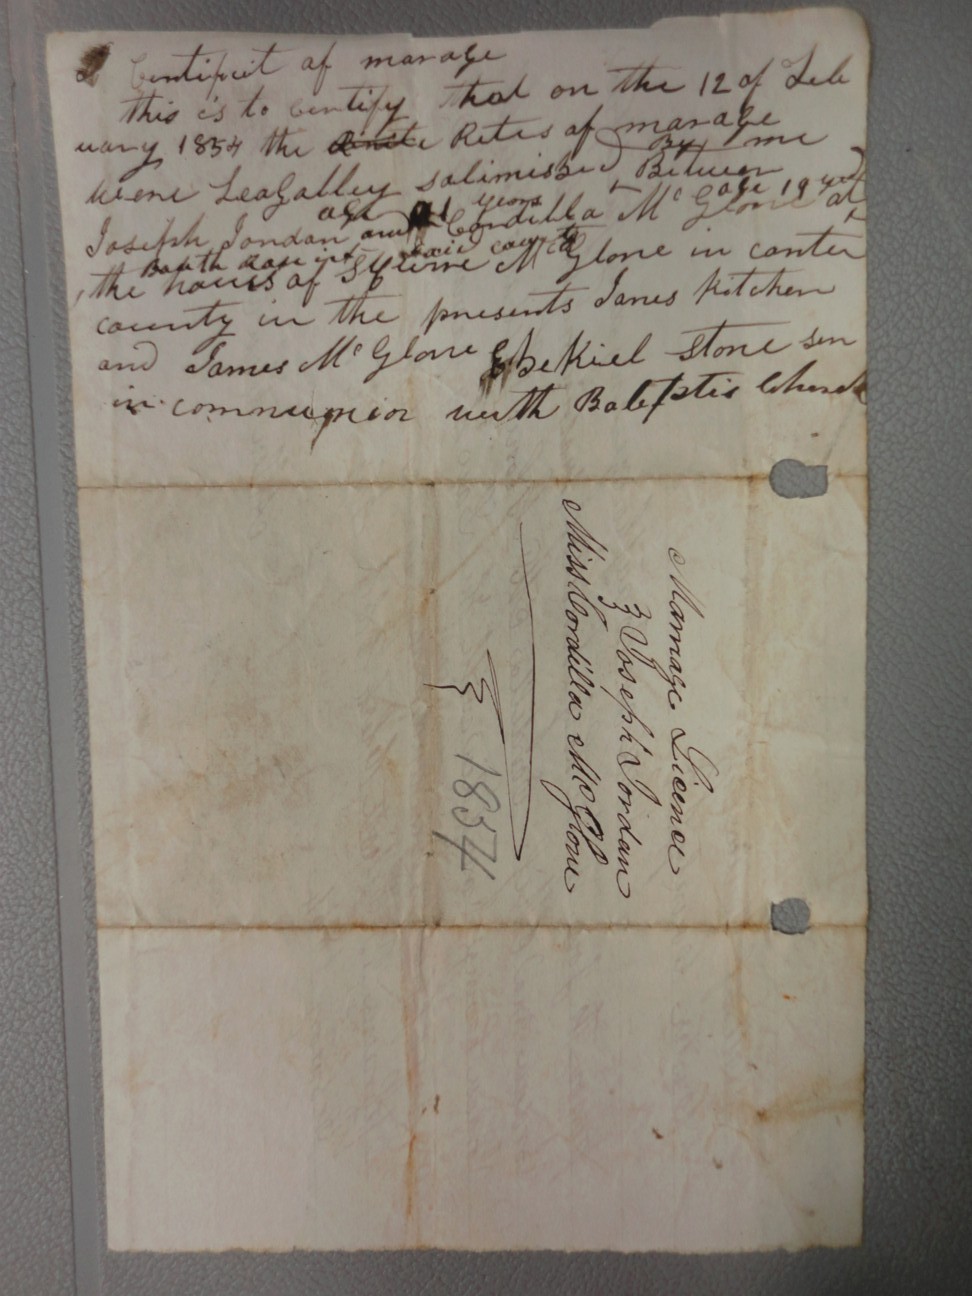 A Certificit of marage
this is to certify that on the 12 of Feb
uary 1854 the Rites of marage
By me
were Leagalley solimised Between
Joseph Jordan age 21 years and Cordilla Mc Glone age 19 years at
Bouth Rais in said county
the hous of Squire Mc Glone in carter
county in the presents Janes Kitchen
and James Mc Glone Ezekiel Stone sen
in communion with Babptis Church
Marriage Licence
Joseph Jordan
Miss Cordilla McGlone
1854